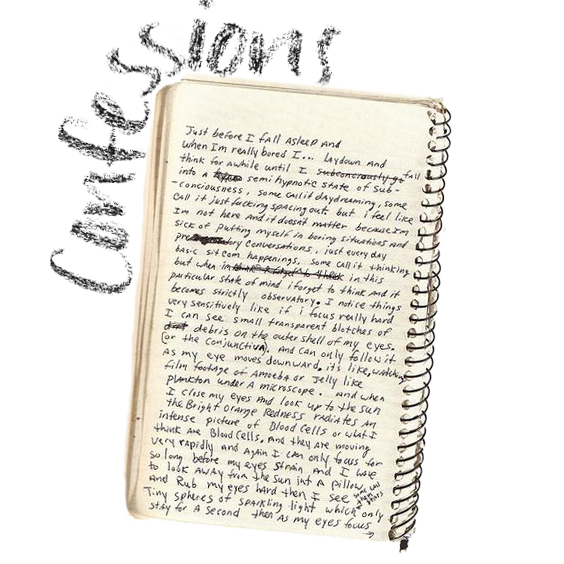 Confessions
Just before I fall Asleep And
when Im really bored I... laydown And
think for awhile until I subconciously go fall
into a semi hypnotic state of sub-
-conciousness, some call it daydreaming, some
call it just fucking spacing out but i feel like
Im not here And it doesnt matter because Im
sick of putting myself in boring situations and
conversations, just every day
basic sitcom happenings, some call it thinking
but when im in this
particular state of mind i forget to think and it
becomes strictly observatory. I notice things
very sensitively like if i focus really hard
I can see small transparent blotches of
debris on the outer shell of my eyes.
(or the conjunctiva). And can only follow it
As my eye moves downward. its like, watching
film footage of Amoeba or Jelly like
plankton under A microscope. And when
I close my eyes And look up to the sun
the Bright orange Redness radiates An
intense picture of Blood Cells or what I
think are Blood Cells. And they are moving
very rapidly and Again I can only focus for
so long before my eyes strain and I have
to look AwAy from the sun into a pillow
And Rub my eyes hard then I see some call them stars
Tiny spheres of sparkling light which only
stay for A second then As my eyes focus